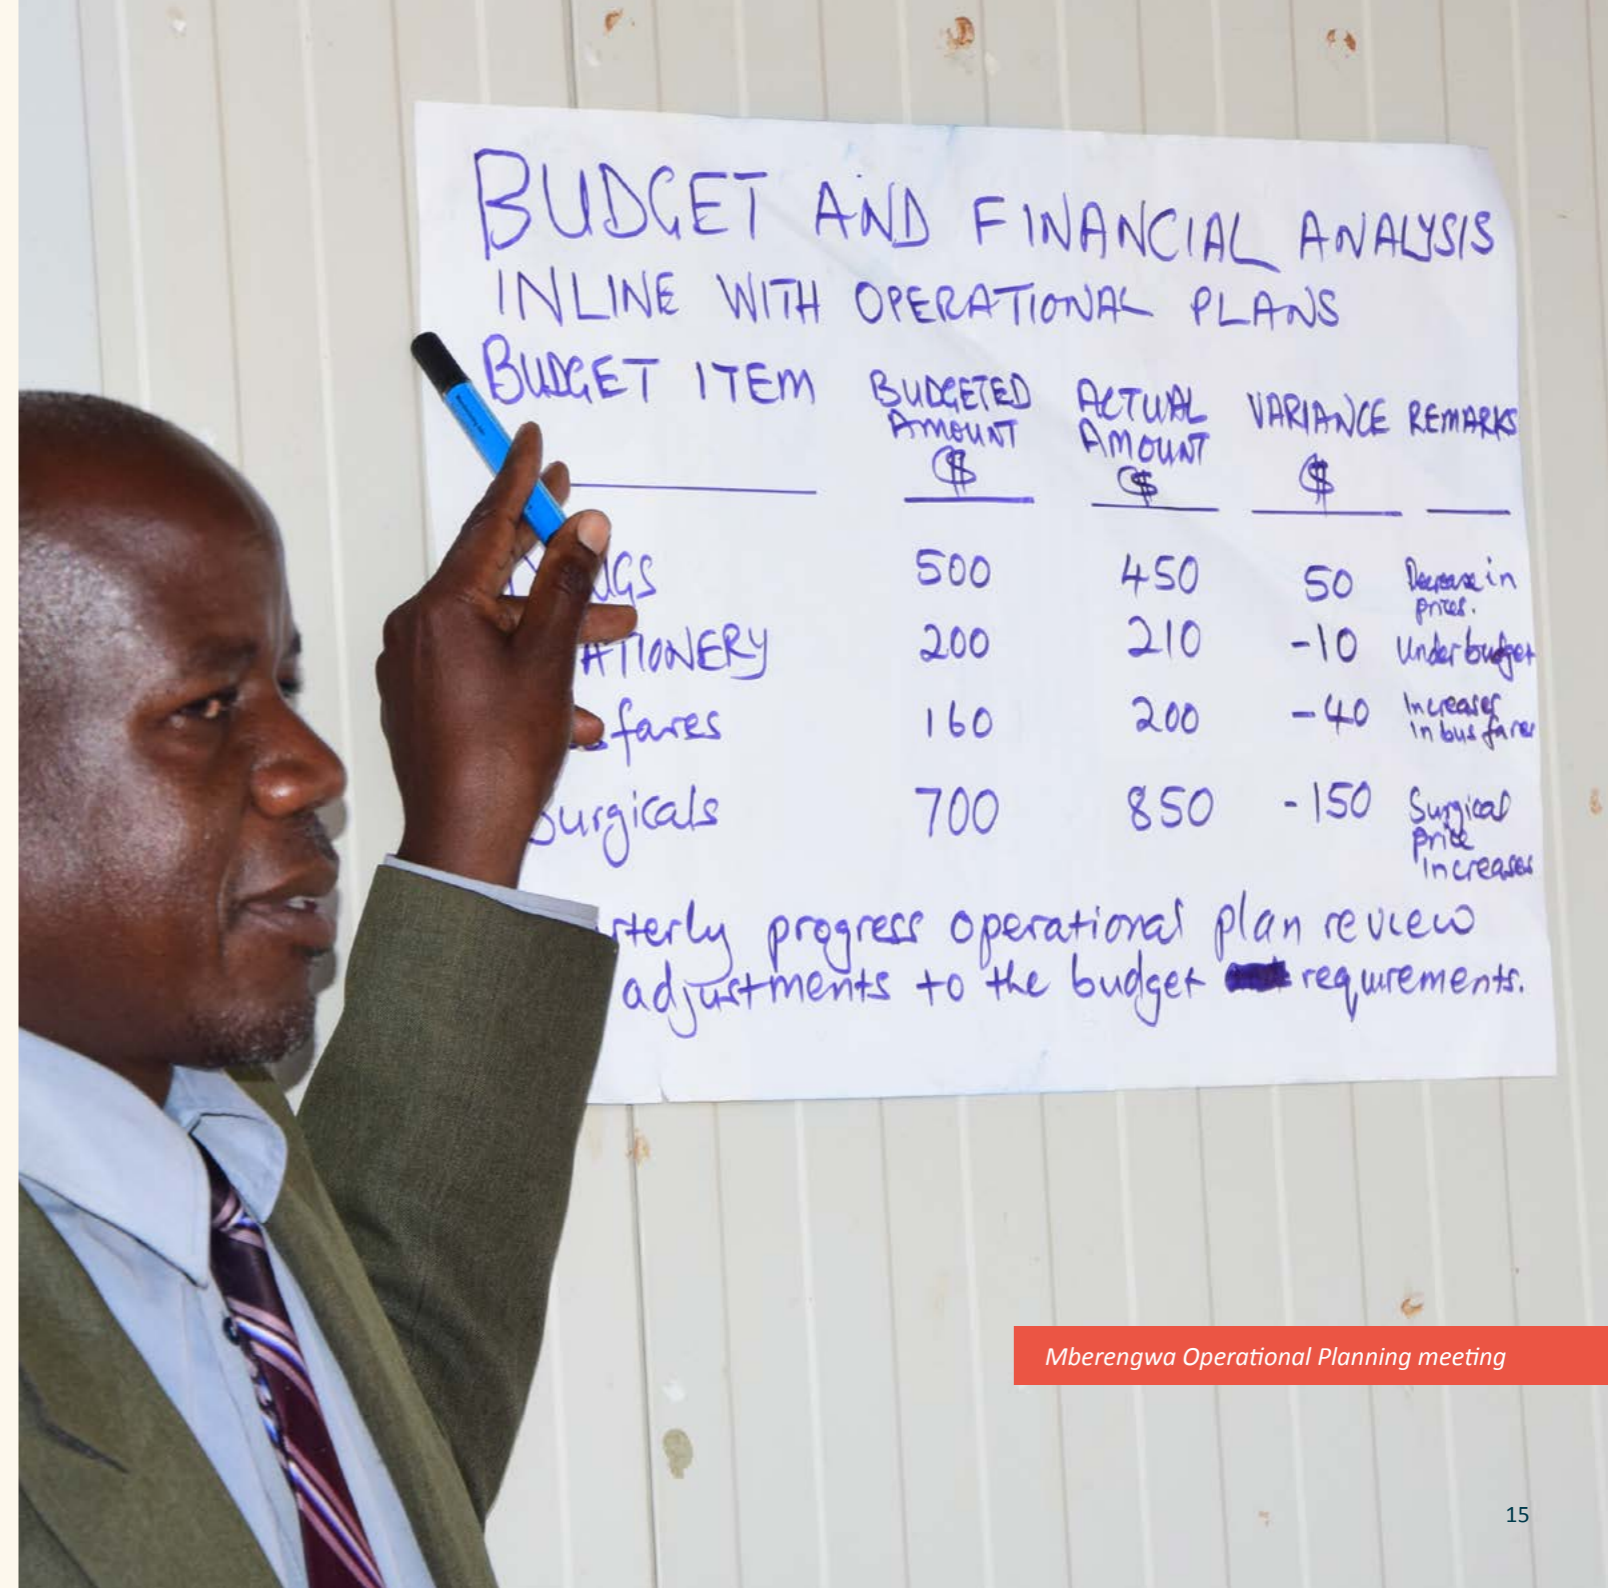 BUDGET AND FINANCIAL ANALYSIS
INLINE WITH OPERATIONAL PLANS
BUDGET ITEM BUDGETED AMOUNT $ ACTUAL AMOUNT $ VARIANCE $ REMARKS
500 450 50 Decrease in prices.
200 210 -10 Under budget
fares 160 200 -40 Increases in bus fares
Surgicals 700 850 -150 Surgical Price increases
progress operational plan review
adjustments to the budget requirements.
Mberengwa Operational Planning meeting
15